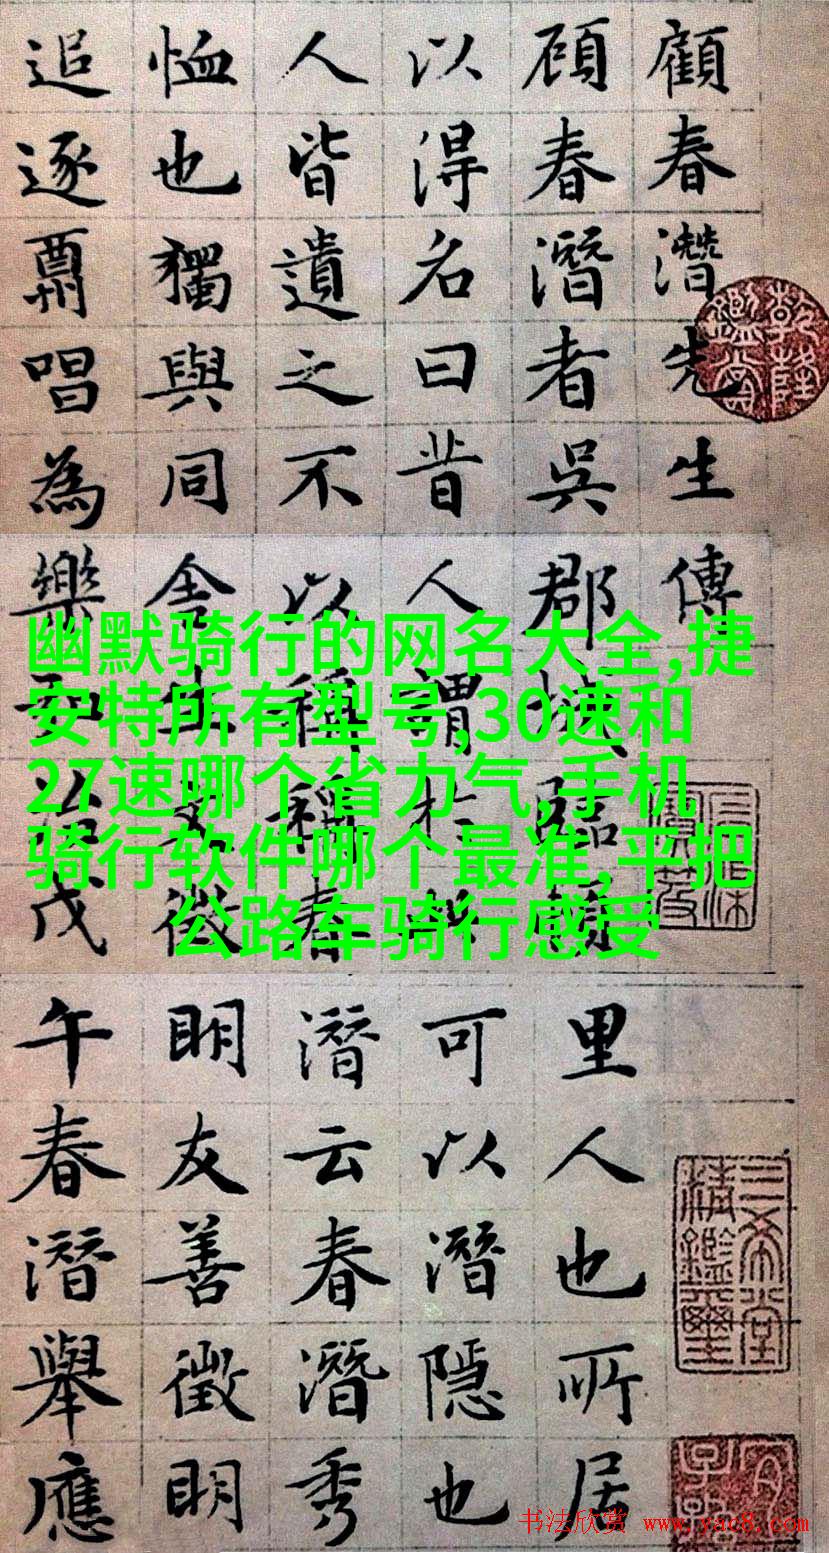 顧春潛先生傳
顾春潛者吳郡城臨頓里人也所居
以得名曰昔人謂於可以潛隱也
人皆遺之不以稱稱春潛云春潛秀
恤也獨與同舍生文徵明友善徵明
追逐唱為樂治戊午春潛舉應
幽默骑行的网名大全,捷
安特所有型号,30速和
27速哪个省力气,手机
骑行软件哪个最准,平把
公路车骑行感受
乾隆鑑賞
三希堂精鑑璽
书法欣赏 www.yac8.com